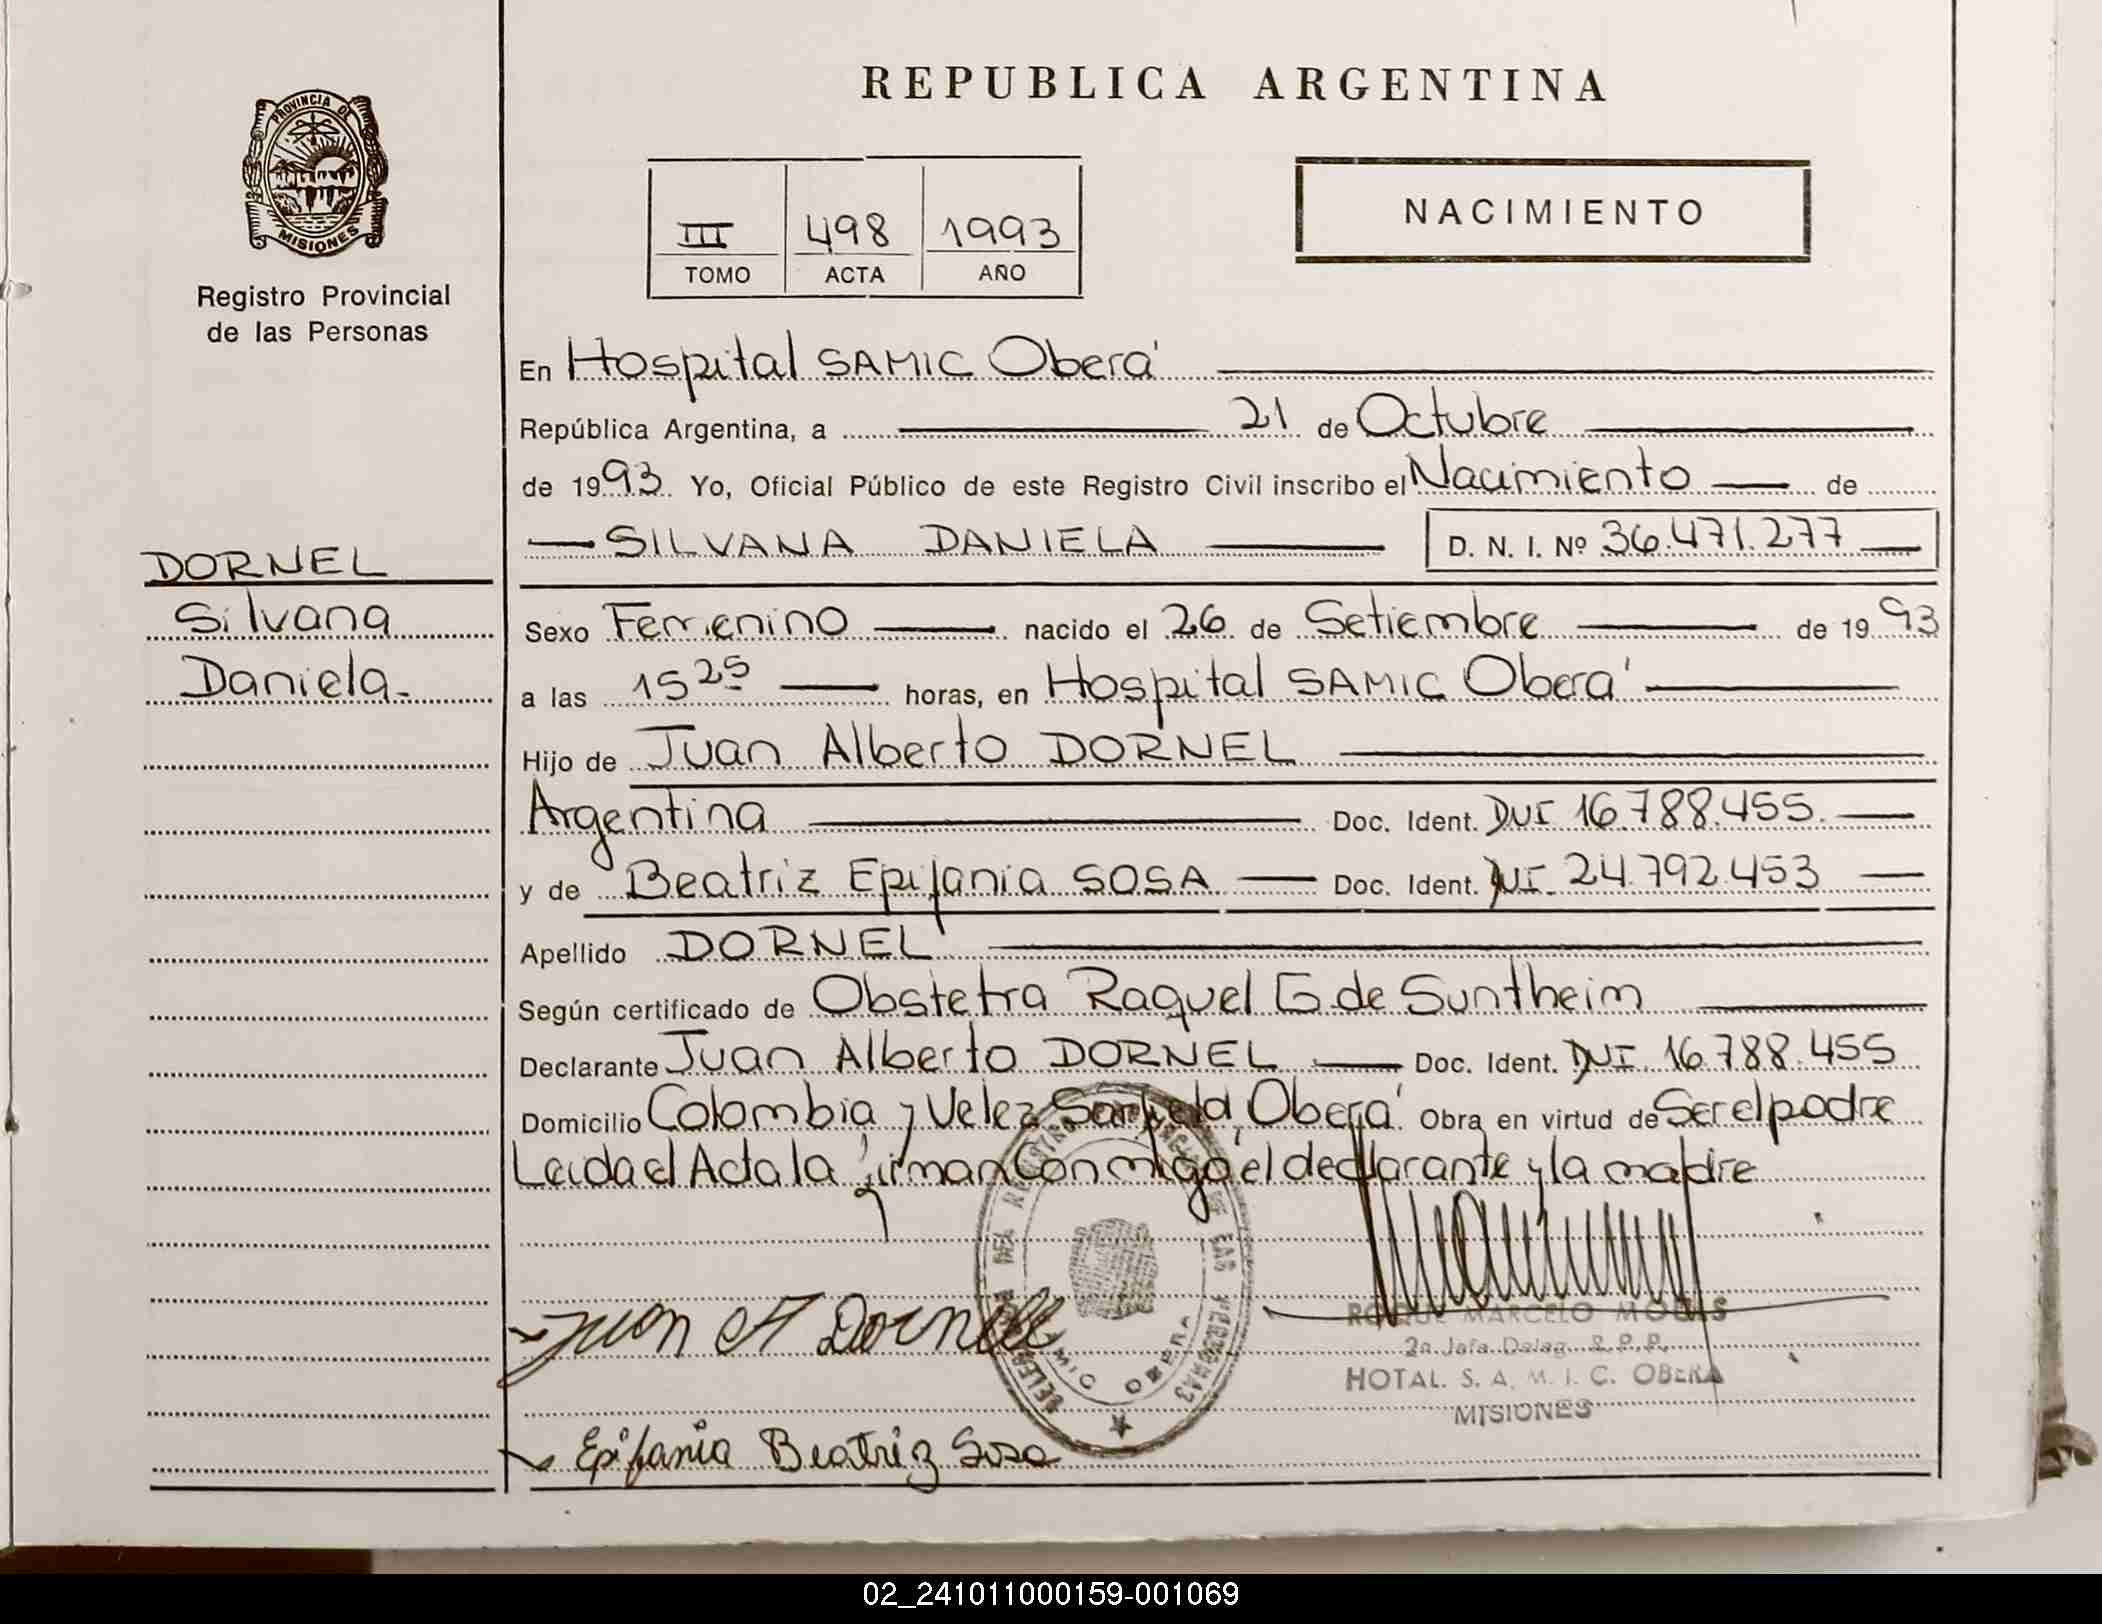 REPUBLICA ARGENTINA
PROVINCIA DE
MISIONES
Registro Provincial
de las Personas
III 498 1993
TOMO ACTA AÑO
NACIMIENTO
En Hospital SAMIC Oberá
República Argentina, a 21 de Octubre
de 1993 Yo, Oficial Público de este Registro Civil inscribo el Nacimiento de
SILVANA DANIELA D. N. I. Nº 36.471.277
DORNEL
Silvana
Daniela.-
Sexo Femenino nacido el 26 de Setiembre de 1993
a las 15 25 horas, en Hospital SAMIC Oberá
Hijo de Juan Alberto DORNEL
Argentina Doc. Ident. DNI 16.788.455.
y de Beatriz Epifania SOSA Doc. Ident. DNI. 24.792.453
Apellido DORNEL
Según certificado de Obstetra Raquel G. de Suntheim
Declarante Juan Alberto DORNEL Doc. Ident. DNI. 16.788.455
Domicilio Colombia y Velez Sarfield, Oberá. Obra en virtud de Ser el padre
Leida el Acta la firman Conmigo el declarante y la madre
Juan A Dornell
ROQUE MARCELO
2a Jefe Deleg. R.P.P.
HOTAL. S. A. M. I. C. OBERA
MISIONES
OBERA
Epifania Beatriz Sosa
02_241011000159-001069